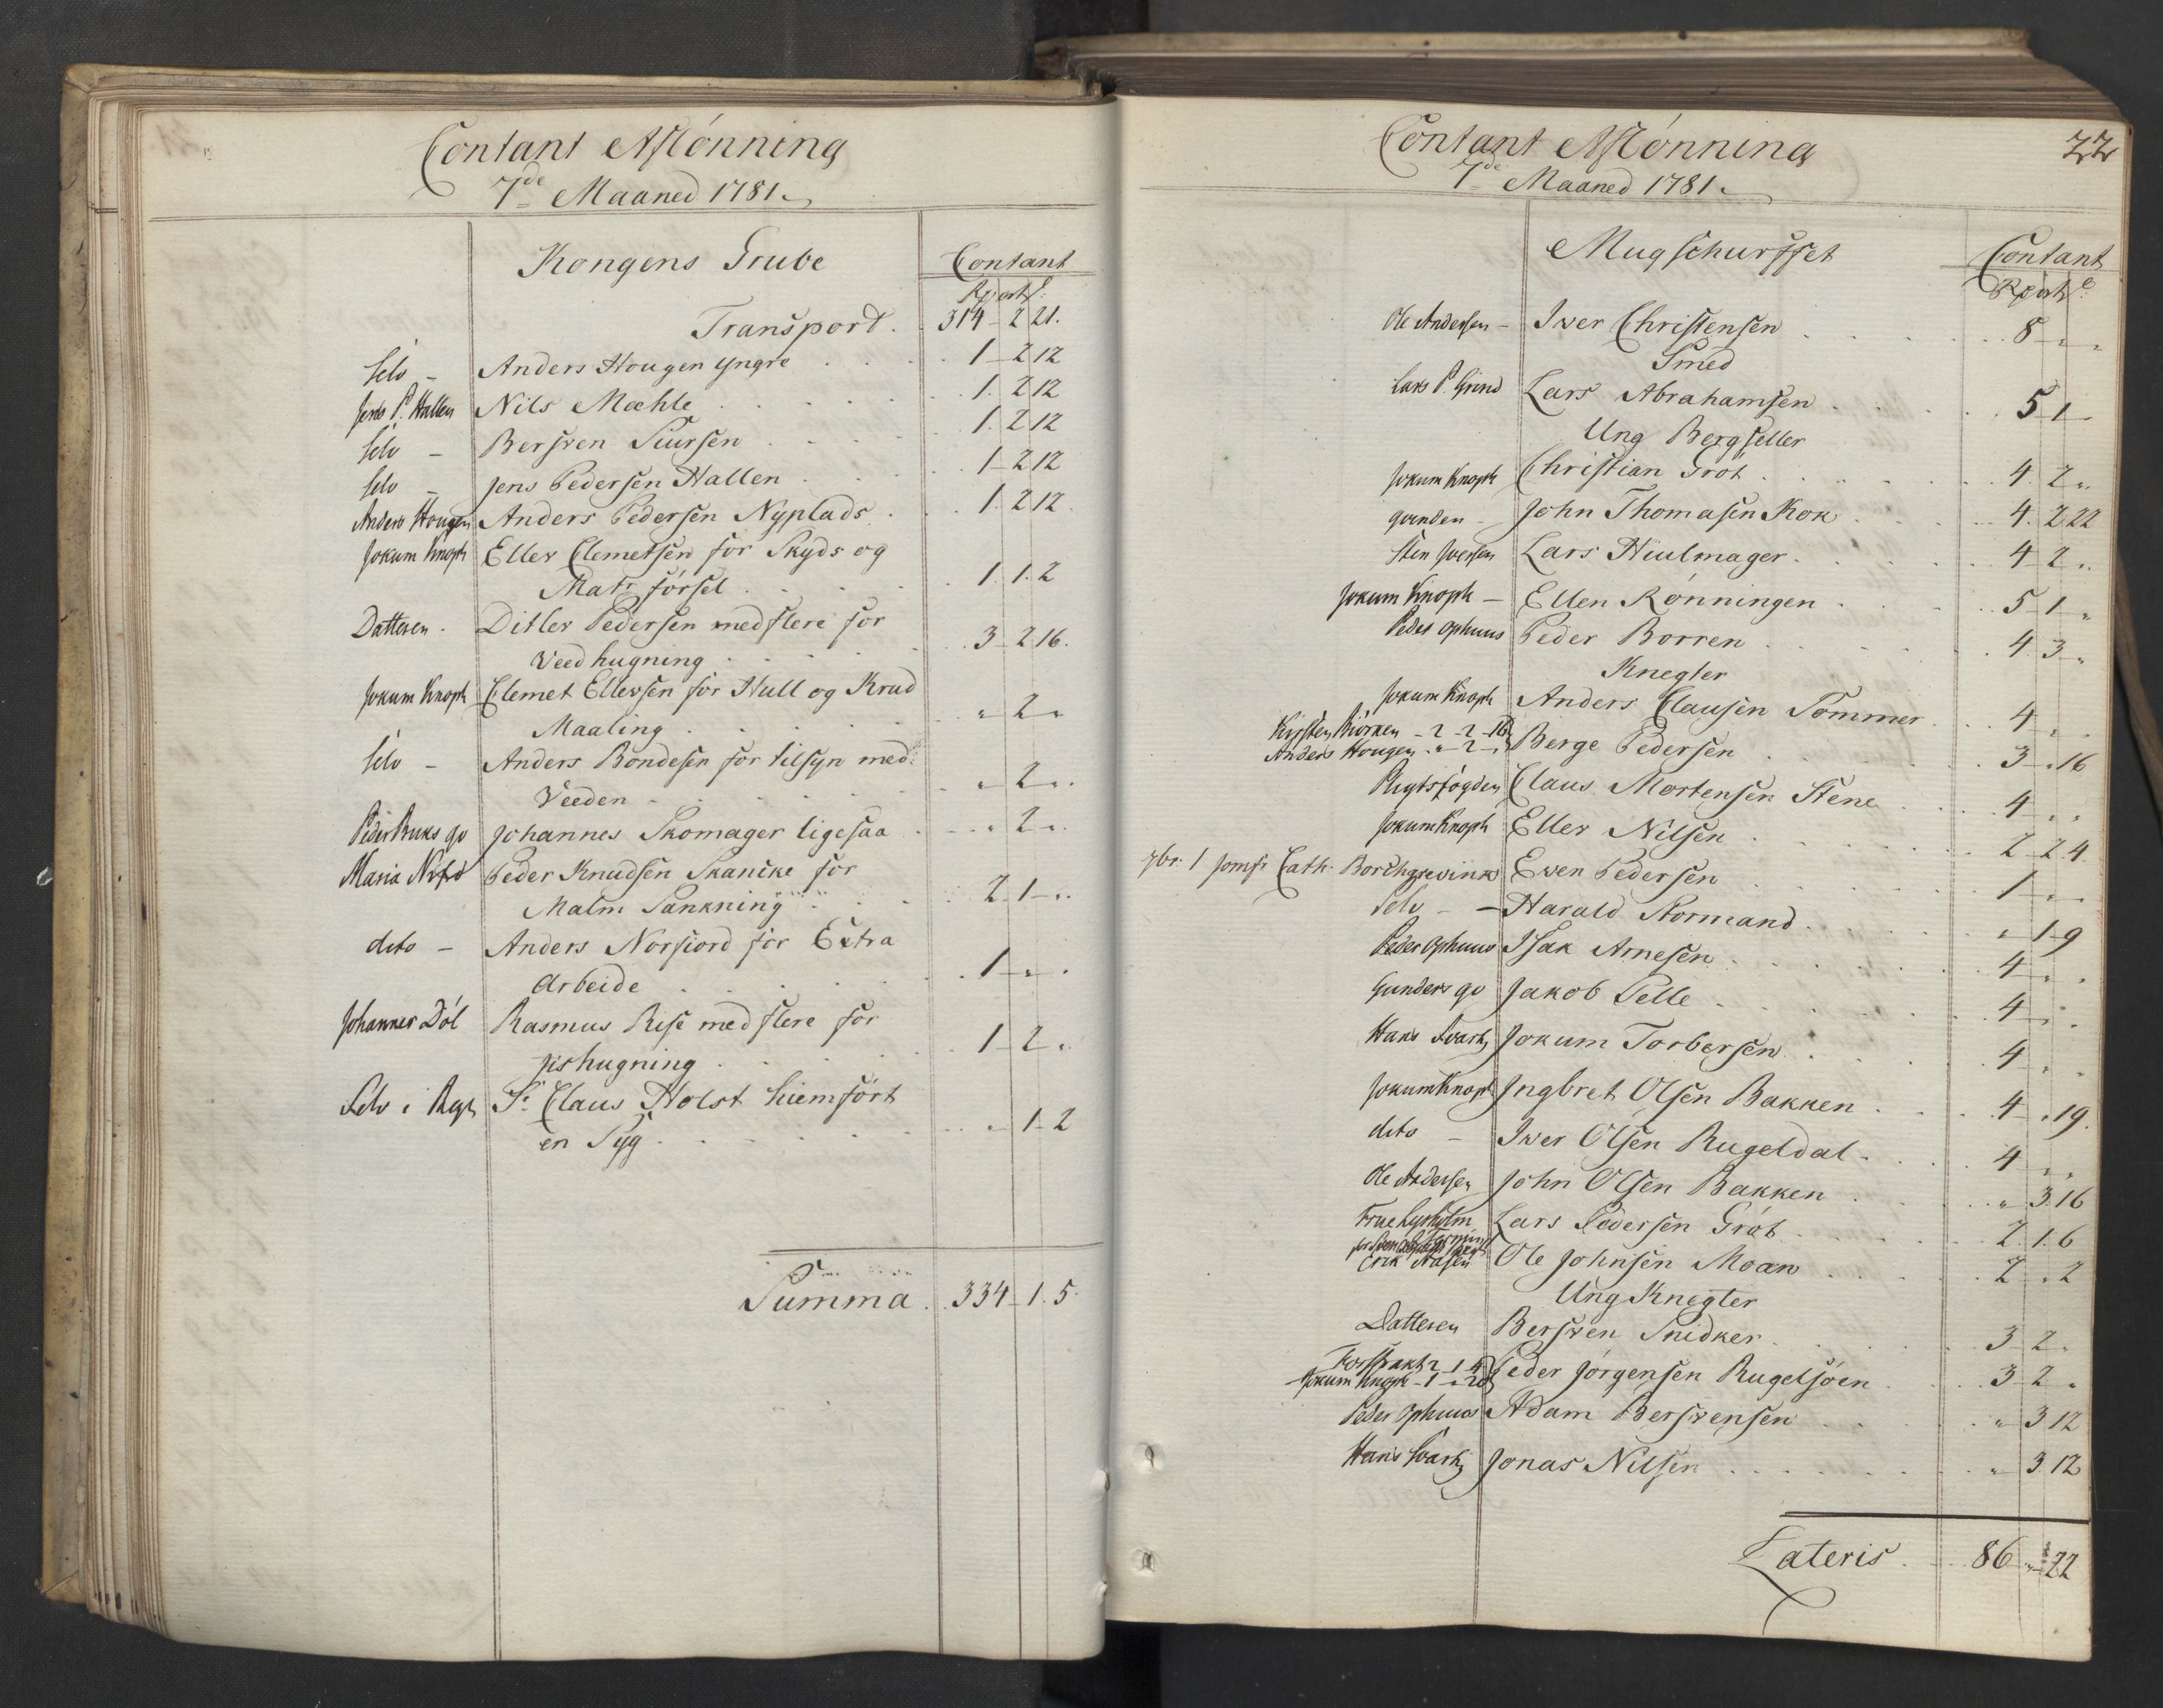 Contant Aflönning
7de Maaned 1781.
Kongens Grube
Contant
Rp ort ſ:
Transport . 314 - 2 21.
Selv - Anders Hougen yngre . . . 1 - 2 12
Jens P. Hallen Nils Mæhle . . . 1. 2 12
Selv - Berswen Siursen . . . 1. 2 12
Selv - Jens Pedersen Hallen . . . 1 - 2 12
Anders Hougen Anders Pedersen Nyplads . . . 1. 2 12.
Jokum Knoph Eller Clemetsen for Skyds og
Matr försel . . . 1. 1. 2
Datteren . Ditler Pedersen med flere for
Veed hugning . . . 3 - 2 16.
Jokum Knoph Clemet Ellersen for Kull og Krud
Maaling . . . " 2 "
Selv - Anders Bondesen for tilsyn med
Veeden . . . " 2 " .
Peder Buks gv Johannes Skomager ligesaa . . . " 2 " .
Maria Peder Knudsen Skancke for
Malm Sankning . . . 2 - 1 - " .
dito - Anders Norfiord for Extra
Arbeide . . . 1 - " .
Johannes Döl Rasmus Rise med flere for
Jishugning . . . 1 - 2 " .
Selv i Regn Sr Claus Holst hiemfört
en Syg . . . " - 1 - 2
Summa . . 334 - 1. 5.
Contant Aflönning
22
7de Maaned 1781.
Mugschurffet
Contant
Rp ort ſ:
Ole Andersen - Iwer Christensen . . . 8 - " "
Smed
Lars P. Grind Lars Abrahamsen . . . 5 1 -
Ung Bergseller
Jokum Knoph Christian Grot . . . 4. 2 " .
qvinden - John Thomasen Kok . . . 4. 2 22
Sten Iversen Lars Hiulmager . . . 4 - 2 " .
Jokum Knoph - Ellen Rönningen . . . 5 - 1 - "
Peder Ophuus Peder Borren . . . 4. 3 - "
Knegter
Jokum Knoph Anders Clausen Tommer . . . 4 - " .
Kirsten Biörken - 2 - 2 - 16
Anders Hougen . " - 2 - " Berge Pedersen . . . 3 - " 16
Rigtsfogden Claus Mortensen Stene . . . 4 - " .
Jokum Knoph Eller Nilsen . . . 2 - 2. 4
7br: 1 Jomfr Cath: Borchgrevink Ewen Pedersen . . . 1 - " -
Selv - - Harald Normand . . . " - 1 - 9
Peder Ophuus Isak Arnesen . . . 4 - " .
Gunders gv Jakob Pelle . . . 4 - " .
Hans Svartz Jokum Torbersen . . . 4 - " "
Jokum Knoph Ingbret Olsen Bakken . . . 4 - " 19.
dito - Iwer Olsen Rugeldal . . . 4 - " "
Ole Andersen John Olsen Bakken . . . " 3. 16
Frue Lysholm Lars Pedersen Gröt . . . 2. 1. 6
Erik Aasen Ole Johnsen Moan . . . 2 - " 2
Ung Knegter
Datteren Berswen Snidker . . . 3 - 2 - "
2 1 4
Jokum Knoph - 1 - " 20 Peder Jörgensen Rugelsöen . . . 3 - 2 - "
Peder Ophuus Adam Berswensen . . . " - 3 12
Hans Svartz Jonas Nilsen . . . " - 3 12
Lateris . . . 86 - " - 22